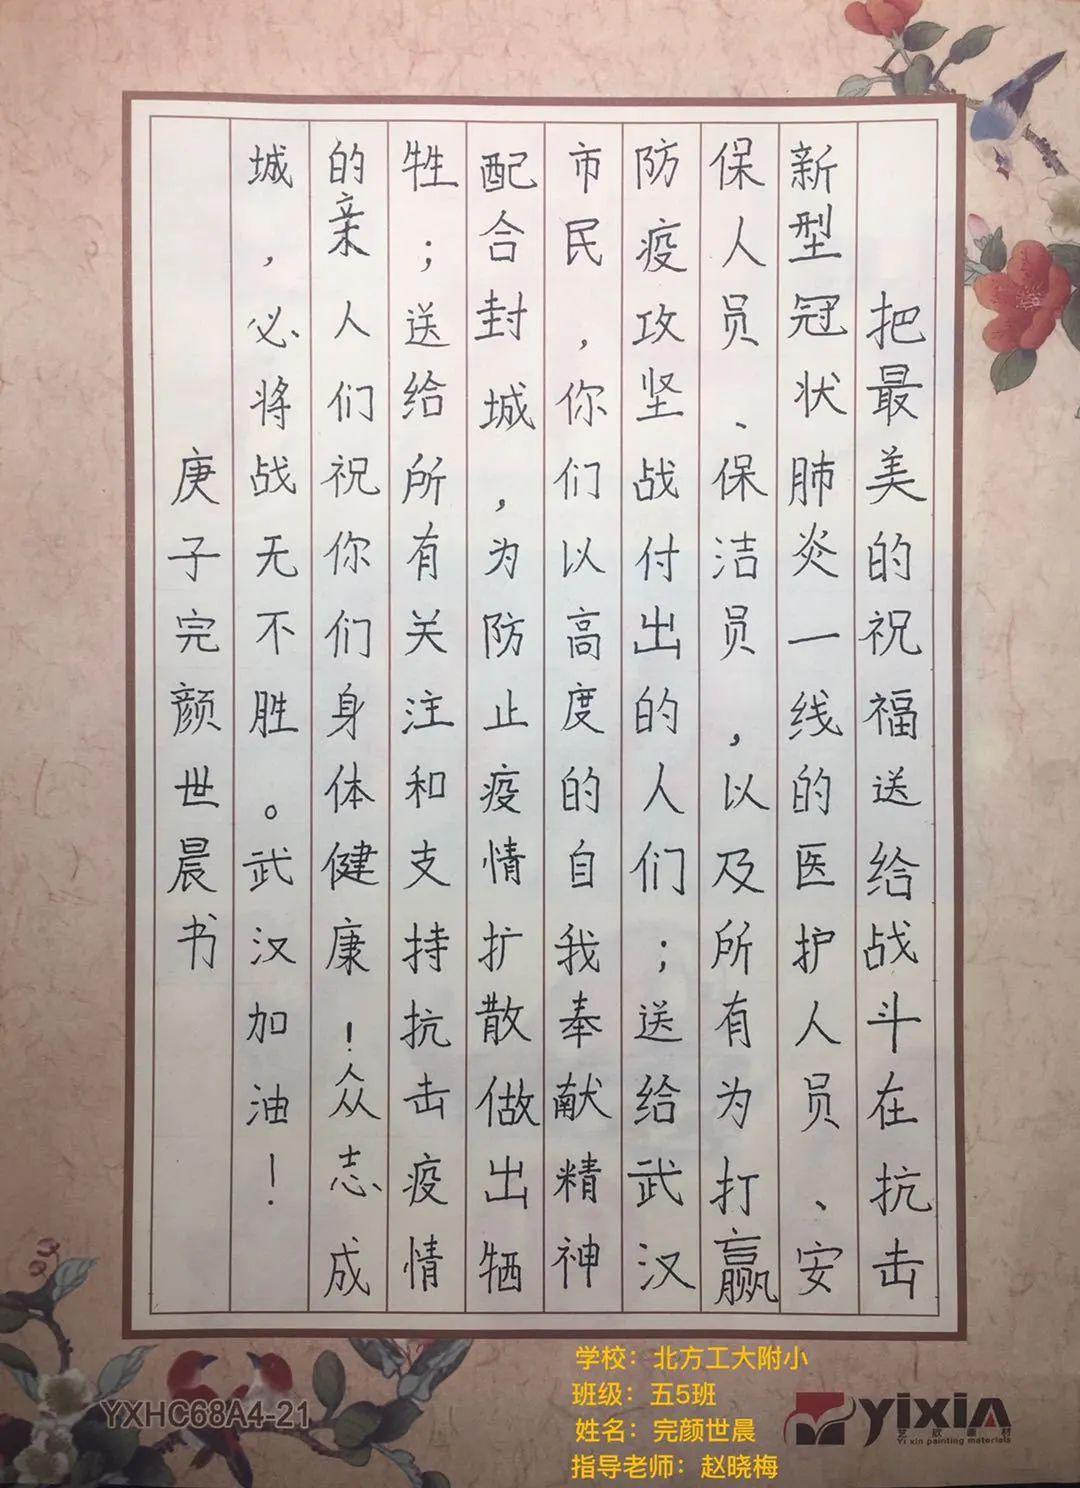 把最美的祝福送给战斗在抗击
新型冠状肺炎一线的医护人员、安
保人员、保洁员,以及所有为打赢
防疫攻坚战付出的人们;送给武汉
市民,你们以高度的自我奉献精神
配合封城,为防止疫情扩散做出牺
牲;送给所有关注和支持抗击疫情
的亲人们祝你们身体健康!众志成
城,必将战无不胜。武汉加油!
庚子完颜世晨书
学校：北方工大附小
班级：五5班
姓名：完颜世晨
指导老师：赵晓梅
YXHC68A4-21
yixin
艺欣画材
Yi xin painting materials